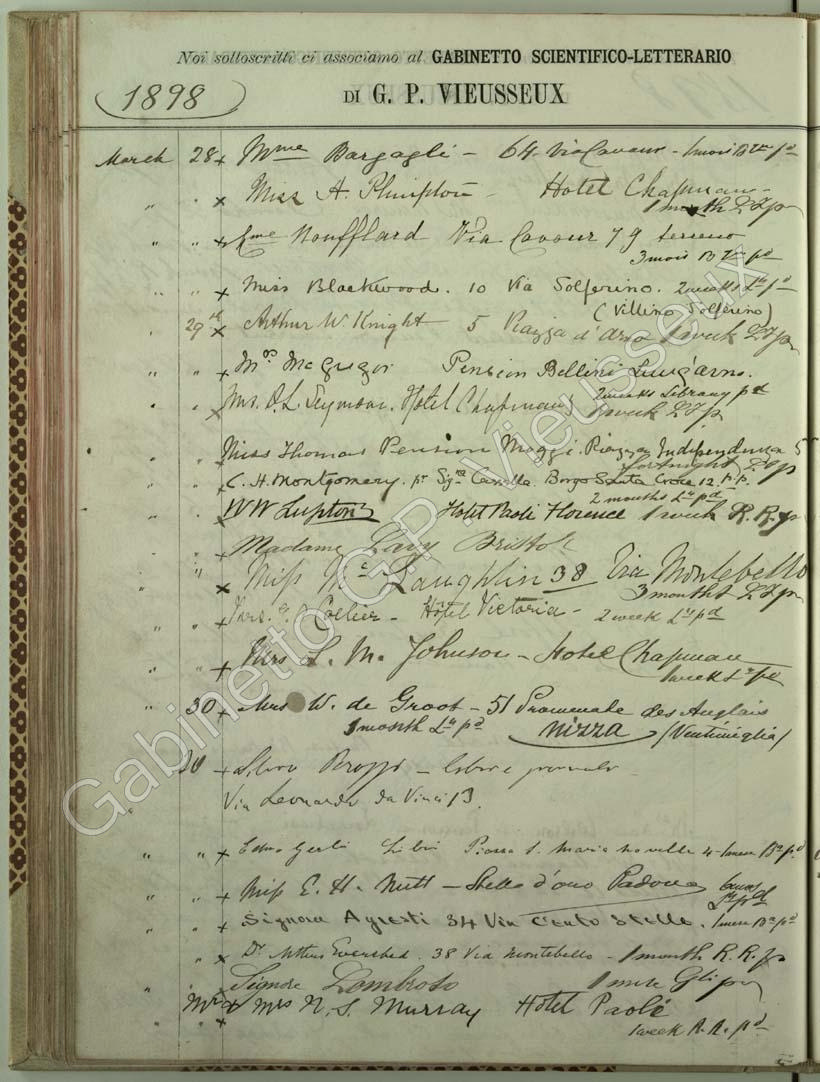 Noi sottoscritti ci associamo al GABINETTO SCIENTIFICO-LETTERARIO
1898
DI G. P. VIEUSSEUX
March 28 x Mme Bargagli - 64 Via Cavour - 1 mois
" " x Miss A. Plimpton - Hotel Chapman -
1 month
" " x Mme Noufflard Via Cavour 79 terreno
3 mois
" " x Miss Blackwood. 10 Via Solferino. 2 weeks
(Villino Solferino)
29 x Arthur W. Knight 5 Piazza d'Arno 1 week
" " x Mrs McGregor Pension Bellini Lung'arno.
2 weeks Library pd
" " x Mrs. D. L. Seymour. Hotel Chapman 1 week
" " Miss Thomas Pension Maggi. Piazza Independenza 5
fortnight
" " C. H. Montgomery. Borgo Santa Croce 12. p.p.
2 months
" " x W W Lupton Hotel Paoli Florence 1 week R. R. p
" " Madame Lavy Bristol
" " x Miss McLaughlin 38 Via Montebello
3 months
" " Mrs. Collier - Hotel Victoria - 2 week
" " x Mrs L. M. Johnson - Hotel Chapman
1 week
" 30 x Mrs W. de Groot - 51 Promenade des Anglais
1 month Nizza (Ventimiglia)
30 x
Via Leonardo da Vinci 13.
" " x Gerli Libri Piazza S. Maria Novella 4 -
" " x Miss E. H. Nutt - Stella d'oro Padova
" " x Signora Agresti 34 Via Cento Stelle.
" " x Dr Arthur Evershed. 38 Via Montebello - 1 month R. R. p
" " x Signore Lombroso 1 mese
" " x Mr & Mrs N. S. Murray Hotel Paoli
1 week R. R. pd
Gabinetto G.P. Vieusseux